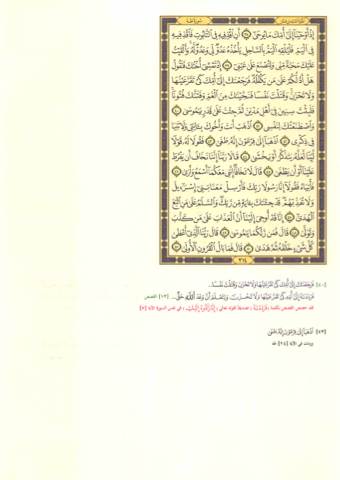 سورة طه
إِذْ أَوْحَيْنَا إِلَىٰ أُمِّكَ مَا يُوحَىٰ ٣٨ أَنِ اقْذِفِيهِ فِي التَّابُوتِ فَاقْذِفِيهِ
فِي الْيَمِّ فَلْيُلْقِهِ الْيَمُّ بِالسَّاحِلِ يَأْخُذْهُ عَدُوٌّ لِّي وَعَدُوٌّ لَّهُ وَأَلْقَيْتُ
عَلَيْكَ مَحَبَّةً مِّنِّي وَلِتُصْنَعَ عَلَىٰ عَيْنِي ٣٩ إِذْ تَمْشِي أُخْتُكَ فَتَقُولُ
هَلْ أَدُلُّكُمْ عَلَىٰ مَن يَكْفُلُهُ فَرَجَعْنَاكَ إِلَىٰ أُمِّكَ كَيْ تَقَرَّ عَيْنُهَا
وَلَا تَحْزَنَ وَقَتَلْتَ نَفْسًا فَنَجَّيْنَاكَ مِنَ الْغَمِّ وَفَتَنَّاكَ فُتُونًا
فَلَبِثْتَ سِنِينَ فِي أَهْلِ مَدْيَنَ ثُمَّ جِئْتَ عَلَىٰ قَدَرٍ يَا مُوسَىٰ ٤٠
وَاصْطَنَعْتُكَ لِنَفْسِي ٤١ اذْهَبْ أَنتَ وَأَخُوكَ بِآيَاتِي وَلَا تَنِيَا
فِي ذِكْرِي ٤٢ اذْهَبَا إِلَىٰ فِرْعَوْنَ إِنَّهُ طَغَىٰ ٤٣ فَقُولَا لَهُ قَوْلًا
لَّيِّنًا لَّعَلَّهُ يَتَذَكَّرُ أَوْ يَخْشَىٰ ٤٤ قَالَا رَبَّنَا إِنَّنَا نَخَافُ أَن يَفْرُطَ
عَلَيْنَا أَوْ أَن يَطْغَىٰ ٤٥ قَالَ لَا تَخَافَا إِنَّنِي مَعَكُمَا أَسْمَعُ وَأَرَىٰ ٤٦
فَأْتِيَاهُ فَقُولَا إِنَّا رَسُولَا رَبِّكَ فَأَرْسِلْ مَعَنَا بَنِي إِسْرَائِيلَ
وَلَا تُعَذِّبْهُمْ قَدْ جِئْنَاكَ بِآيَةٍ مِّن رَّبِّكَ وَالسَّلَامُ عَلَىٰ مَنِ اتَّبَعَ
الْهُدَىٰ ٤٧ إِنَّا قَدْ أُوحِيَ إِلَيْنَا أَنَّ الْعَذَابَ عَلَىٰ مَن كَذَّبَ
وَتَوَلَّىٰ ٤٨ قَالَ فَمَن رَّبُّكُمَا يَا مُوسَىٰ ٤٩ قَالَ رَبُّنَا الَّذِي أَعْطَىٰ
كُلَّ شَيْءٍ خَلْقَهُ ثُمَّ هَدَىٰ ٥٠ قَالَ فَمَا بَالُ الْقُرُونِ الْأُولَىٰ ٥١
٣١٤
[٤٠] فَرَجَعْنَاكَ إِلَىٰ أُمِّكَ كَيْ تَقَرَّ عَيْنُهَا وَلَا تَحْزَنَ وَقَتَلْتَ نَفْسًا...
فَرَدَدْنَاهُ إِلَىٰ أُمِّهِ كَيْ تَقَرَّ عَيْنُهَا وَلَا تَحْزَنَ وَلِتَعْلَمَ أَنَّ وَعْدَ اللَّهِ حَقٌّ... [١٣] القصص
[٤٣] اذْهَبَا إِلَىٰ فِرْعَوْنَ إِنَّهُ طَغَىٰ
وردت في الآية [٢٤] طه